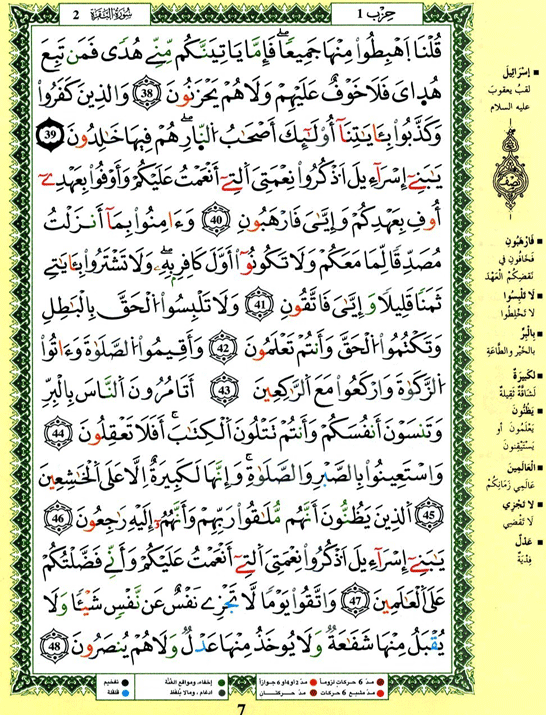 سُورَةُ البَقَرَة 2
حِزْب 1
قُلْنَا اَهْبِطُواْ مِنْهَا جَمِيعاٗۖ فَإِمَّا يَاتِيَنَّكُم مِّنِّے هُدٗى فَمَن تَبِعَ
هُد۪ايَ فَلَا خَوْفٌ عَلَيْهِمْ وَلَا هُمْ يَحْزَنُونَ 38 وَالذِينَ كَفَرُواْ
وَكَذَّبُواْ بِـَٔايَٰتِنَآ أُوْلَٰٓئِكَ أَصْحَٰبُ النّ۪ارِۖ هُمْ فِيهَا خَٰلِدُونَ 39
يَٰبَنِےٓ إِسْرَآءِيلَ اَذْكُرُواْ نِعْمَتِيَ اَلتِےٓ أَنْعَمْتُ عَلَيْكُمْ وَأَوْفُواْ بِعَهْدِےٓ
أُوفِ بِعَهْدِكُمْ وَإِيَّٰيَ فَارْهَبُونِ 40 وَءَامِنُواْ بِمَآ أَنزَلْتُ
مُصَدِّقاٗ لِّمَا مَعَكُمْ وَلَا تَكُونُوٓاْ أَوَّلَ كَافِرِۢ بِهِۦۖ وَلَا تَشْتَرُواْ بِـَٔايَٰتِے
ثَمَناٗ قَلِيلاٗ وَإِيَّٰيَ فَاتَّقُونِ 41 وَلَا تَلْبِسُواْ اُلْحَقَّ بِالْبَٰطِلِ
وَتَكْتُمُواْ اُلْحَقَّ وَأَنتُمْ تَعْلَمُونَ 42 وَأَقِيمُواْ اُلصَّلَوٰةَ وَءَاتُواْ
اُلزَّكَوٰةَ وَارْكَعُواْ مَعَ اَلرَّٰكِعِينَ 43 أَتَامُرُونَ اَلنَّاسَ بِالْبِرِّ
وَتَنسَوْنَ أَنفُسَكُمْ وَأَنتُمْ تَتْلُونَ اَلْكِتَٰبَۚ أَفَلَا تَعْقِلُونَ 44
وَاسْتَعِينُواْ بِالصَّبْرِ وَالصَّلَوٰةِۚ وَإِنَّهَا لَكَبِيرَةٌ اِلَّا عَلَى اَلْخَٰشِعِينَ
45 اَلذِينَ يَظُنُّونَ أَنَّهُم مُّلَٰقُواْ رَبِّهِمْ وَأَنَّهُمُۥٓ إِلَيْهِ رَٰجِعُونَ 46
يَٰبَنِےٓ إِسْرَآءِيلَ اَذْكُرُواْ نِعْمَتِيَ اَلتِےٓ أَنْعَمْتُ عَلَيْكُمْ وَأَنِّے فَضَّلْتُكُمْ
عَلَى اَلْعَٰلَمِينَ 47 وَاتَّقُواْ يَوْماٗ لَّا تَجْزِے نَفْسٌ عَن نَّفْسٖ شَيْـٔاٗ وَلَا
يُقْبَلُ مِنْهَا شَفَٰعَةٞ وَلَا يُوخَذُ مِنْهَا عَدْلٞ وَلَا هُمْ يُنصَرُونَ 48
إِسْرَائِيلَ
لقبُ يعقوبَ
عليه السلام
نصف
فَارْهَبُونِ
فَخَافُونِ فِي
نَقْضِكُمُ الْعَهْدَ
لَا تَلْبِسُوا
لَا تَخْلِطُوا
بِالْبِرِّ
بِالخَيْرِ والطَّاعَةِ
لَكَبِيرَةٌ
لَشَاقَّةٌ ثَقِيلَةٌ
يَظُنُّونَ
يَعْلَمُونَ أو
يَسْتَيْقِنُونَ
الْعَالَمِينَ
عَالَمِي زَمَانِكُمْ
لَا تَجْزِي
لَا تَقْضِي
عَدْلٌ
فِدْيَةٌ
مدّ 6 حركات لزوماً مدّ 2 أو 4 أو 6 جوازاً إخفاء، ومواقع الغُنَّة تفخيم
مدّ مشبع 6 حركات مدّ حركتان إدغام، وما لا يُلفظ قلقلة
7